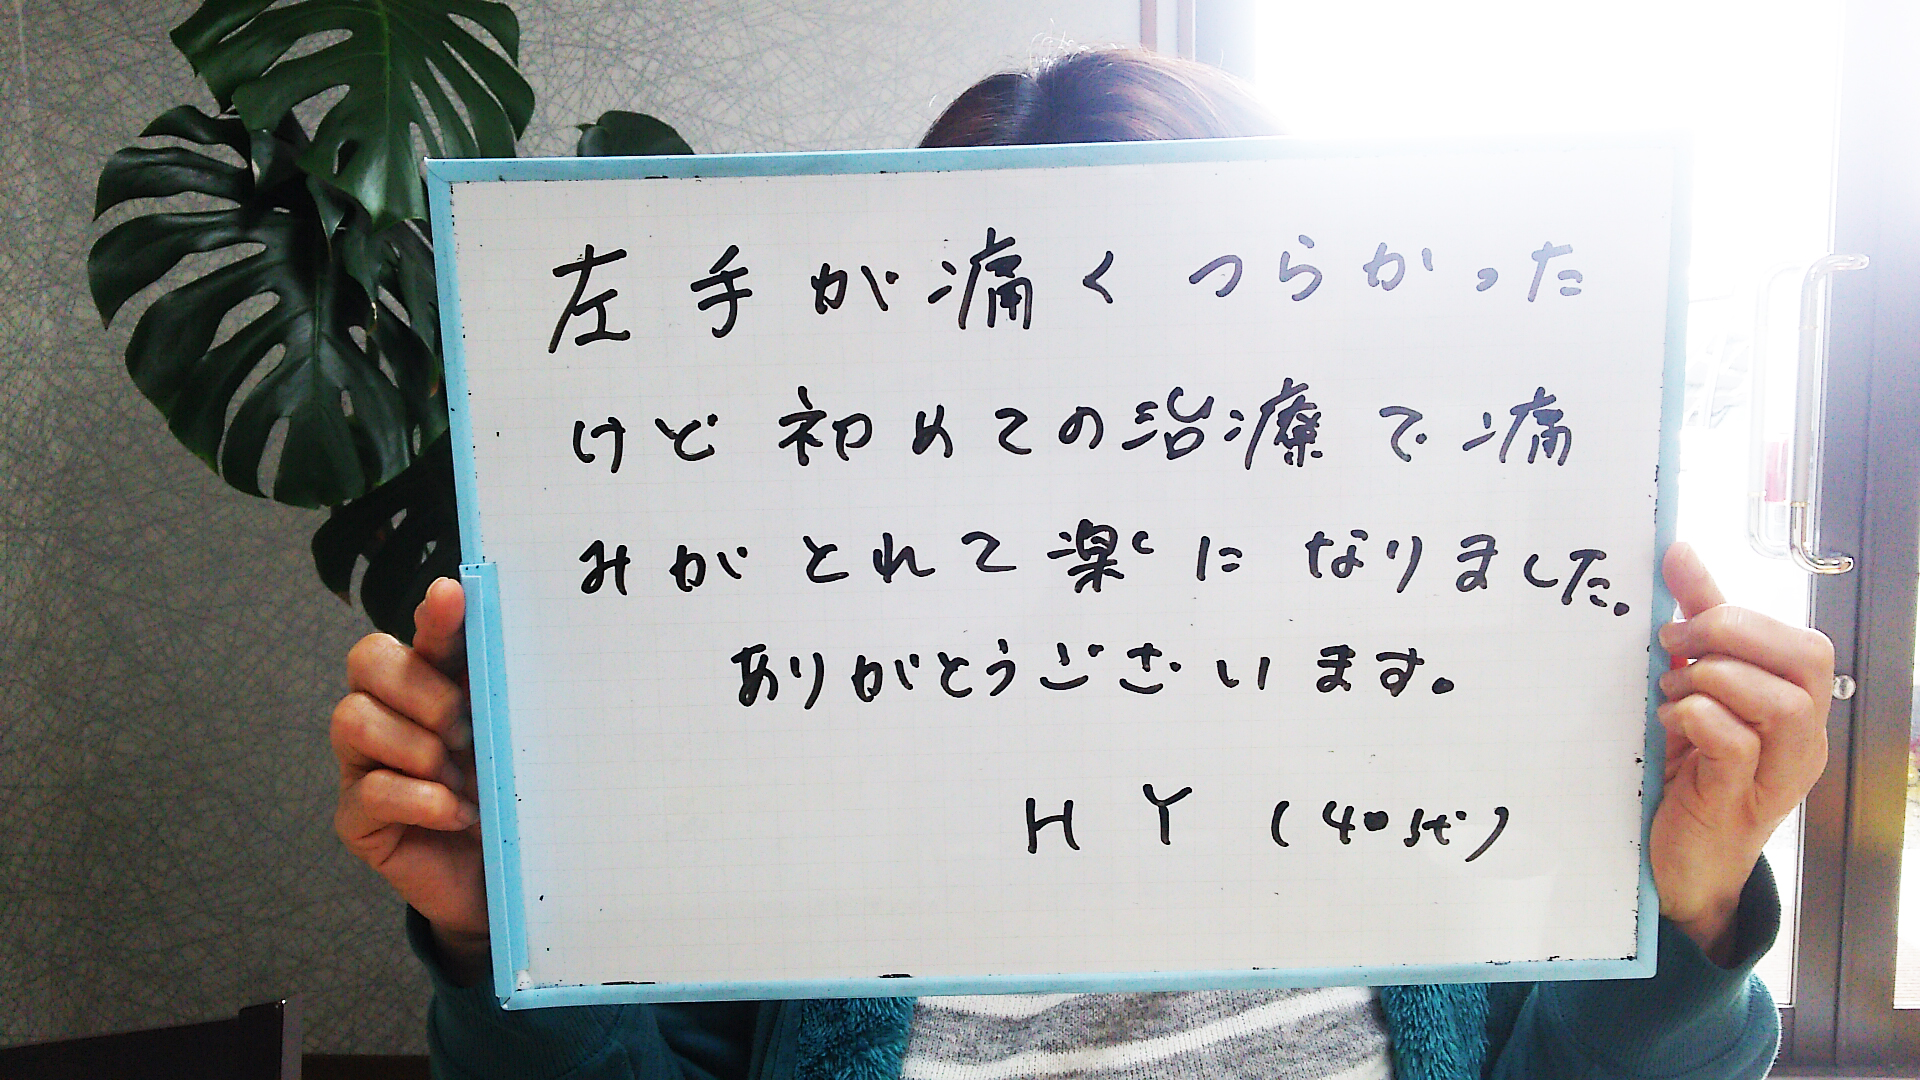 左手が痛くつらかった
けど初めての治療で痛
みがとれて楽になりました。
ありがとうございます。
H Y (40代)